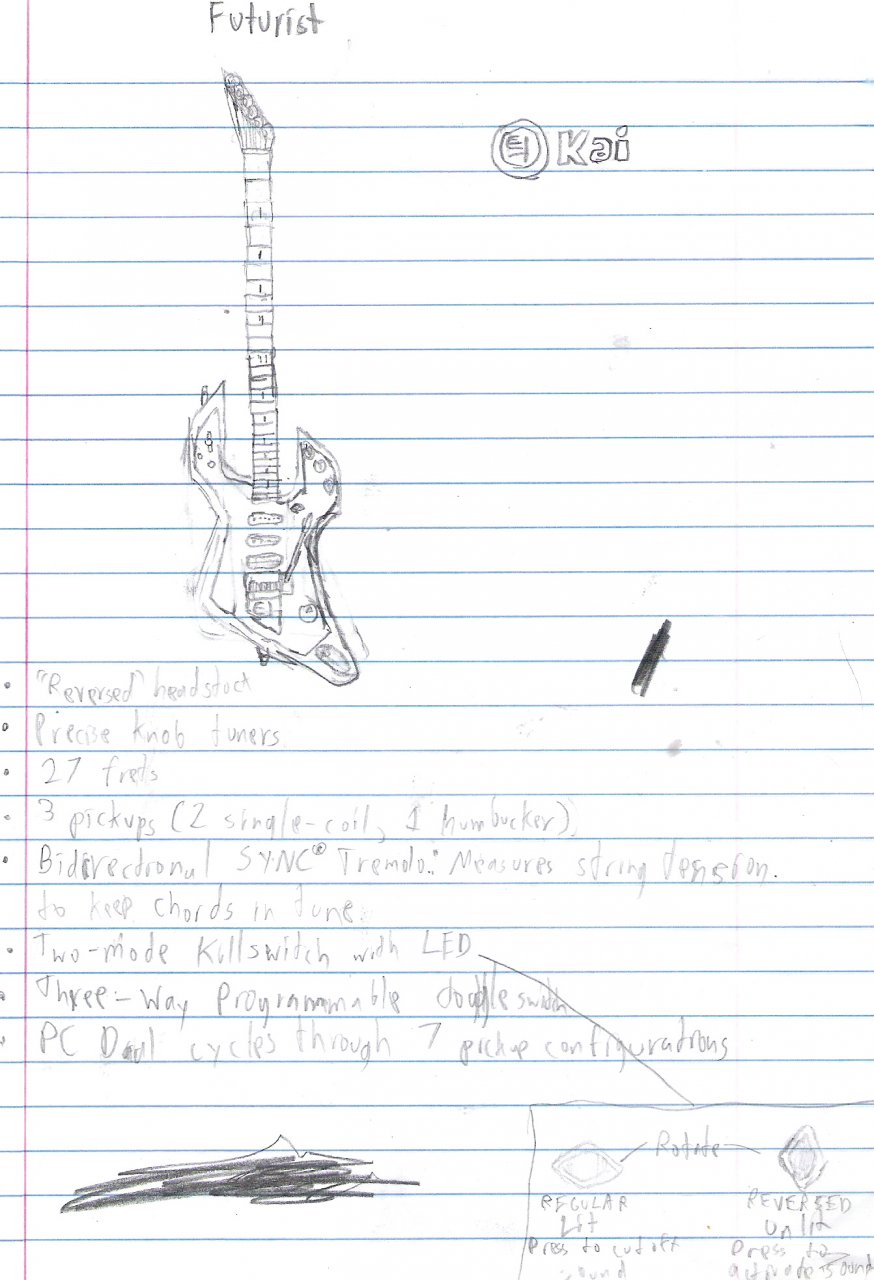 Futurist
Kai
• "Reversed" headstock
• Precise Knob tuners
• 27 frets
• 3 pickups (2 single-coil, 1 humbucker)
• Bidirectional SYNC® Tremolo: Measures string tension
to keep chords in tune.
• Two-mode Killswitch with LED
• Three-Way Programmable toggle switch
• PC Dial cycles through 7 pickup configurations
Rotate
REGULAR REVERSED
Lit Unlit
Press to cut off Press to
sound activate sound